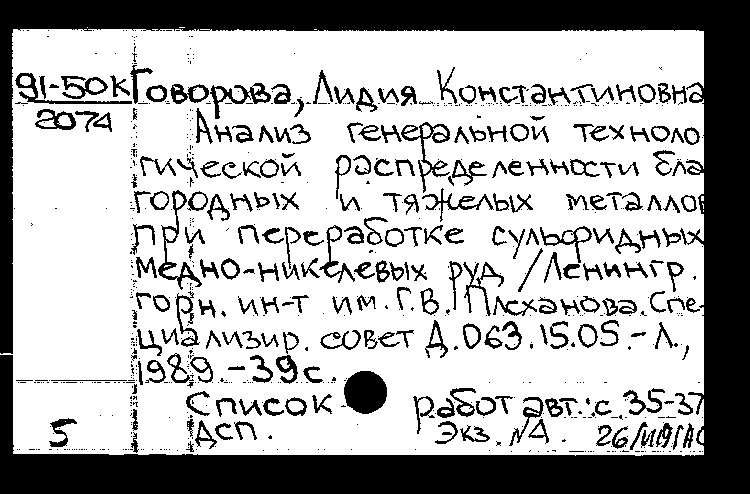 91-50к Говорова, Лидия Константиновна
2074 Анализ генеральной техноло
гической распределенности бла
городных и тяжелых металлов
при переработке сульфидных
медно-никелевых руд / Ленингр.
горн. ин-т им. Г.В. Плеханова. Спе-
циализир. совет Д.063.15.05.-Л.,
1989.-39с.
Список работ авт.: с. 35-37
5 ДСП. Экз. №